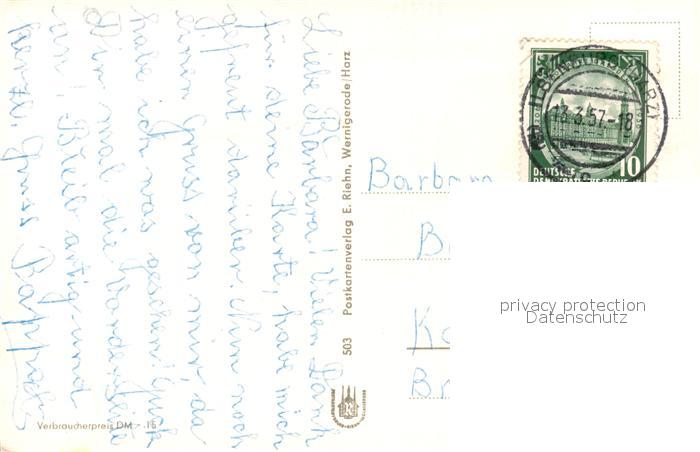 Liebe Barbara! Vielen Dank
für deine Karte, habe mich
gefreut darüber. Nun noch
einen Gruss von mir, da
habe ich was gesehen! Guck
Dir mal die Vorderseite
an! Bleib artig und
herzl. Gruss
Verbraucherpreis DM -.15
503 Postkartenverlag E. Riehn, Wernigerode/Harz
13.3.57-18
10
DEUTSCHE
DEMOKRATISCHE REPUBLIK
Barbara
B
K
Br
privacy protection
Datenschutz